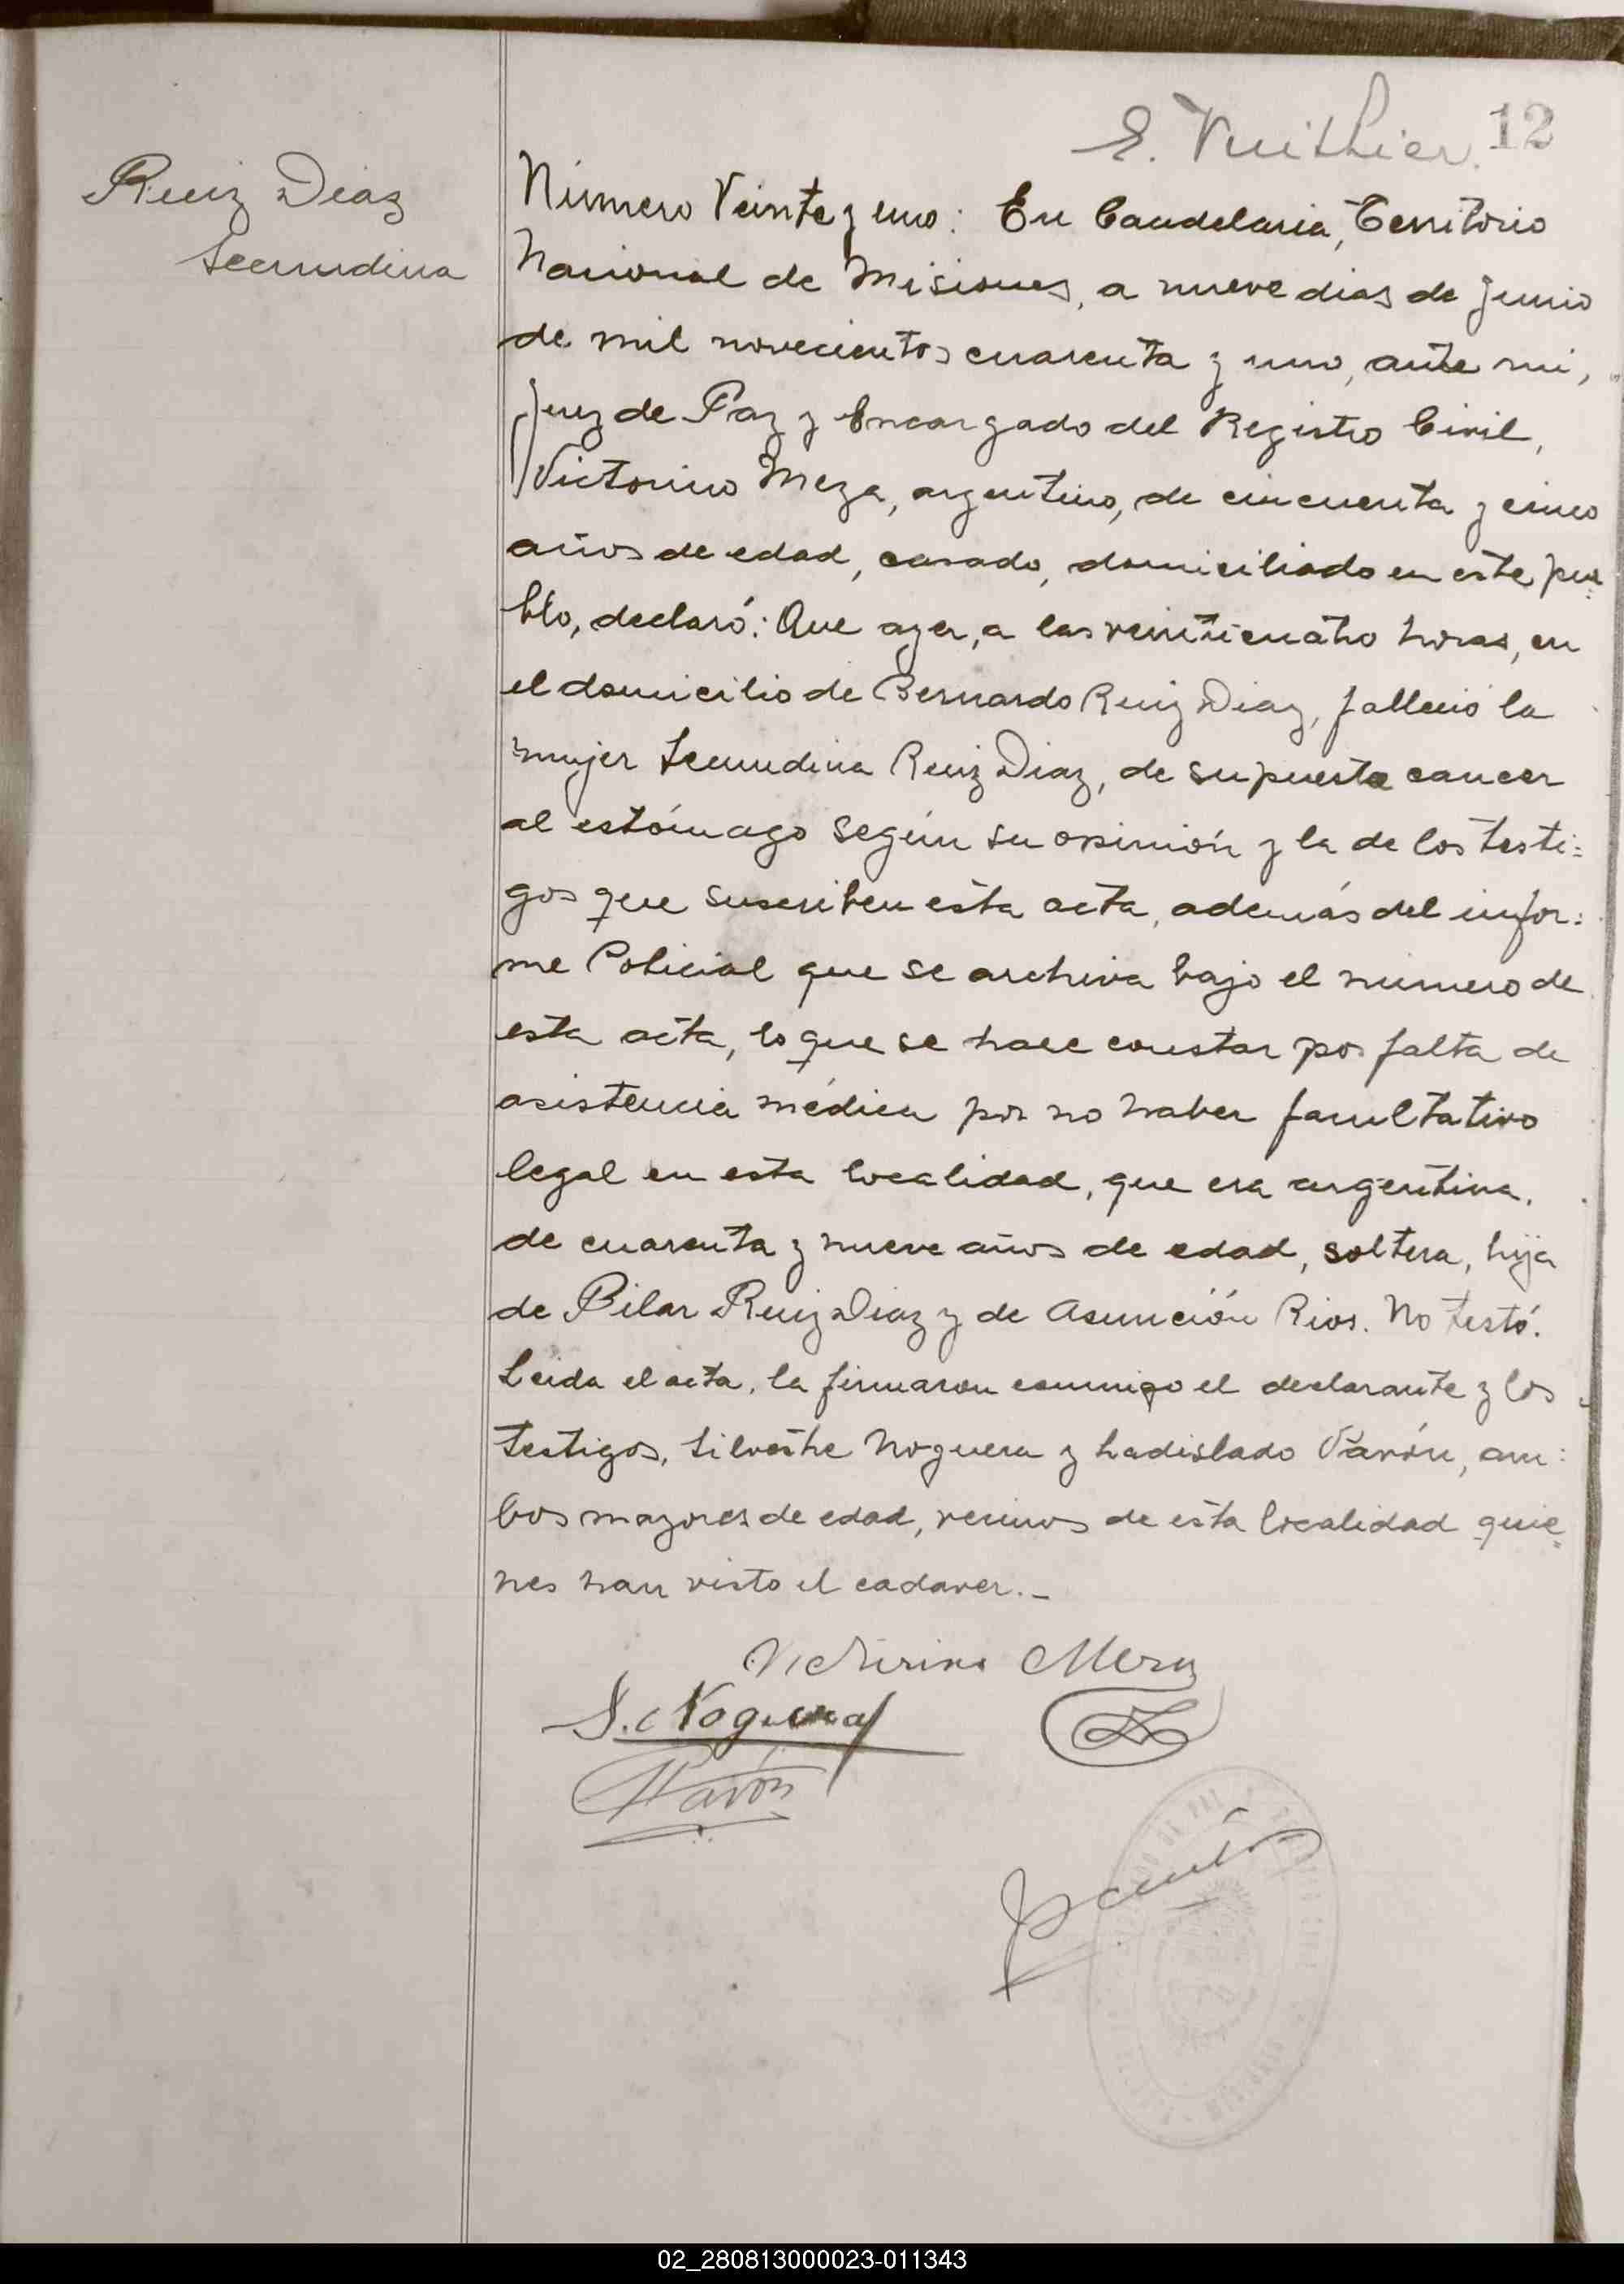 E. Vuithier. 12
Ruiz Diaz
Secundina
Número Veinte y uno: En Candelaria, Territorio
Nacional de Misiones, a nueve dias de Junio
de mil novecientos cuarenta y uno, ante mi,
Juez de Paz y Encargado del Registro Civil,
Victorino Meza, argentino, de cincuenta y cinco
años de edad, casado, domiciliado en este pue=
blo, declaró: Que ayer, a las veinticuatro horas, en
el domicilio de Bernardo Ruiz Diaz, falleció la
mujer Secundina Ruiz Diaz, de supuesto cancer
al estómago según su opinión y la de los testi=
gos que suscriben esta acta, además del infor=
me Policial que se archiva bajo el número de
esta acta, lo que se hace constar por falta de
asistencia médica por no haber facultativo
legal en esta localidad, que era argentina,
de cuarenta y nueve años de edad, soltera, hija
de Pilar Ruiz Diaz y de Asunción Rios. No testó.
Leida el acta, la firmaron conmigo el declarante y los
testigos, Silvestre Noguera y Ladislado Pavón, am=
bos mayores de edad, vecinos de esta localidad quie=
nes han visto el cadaver.–
Victorino Meza
S. Noguera
Pavón
02_280813000023-011343